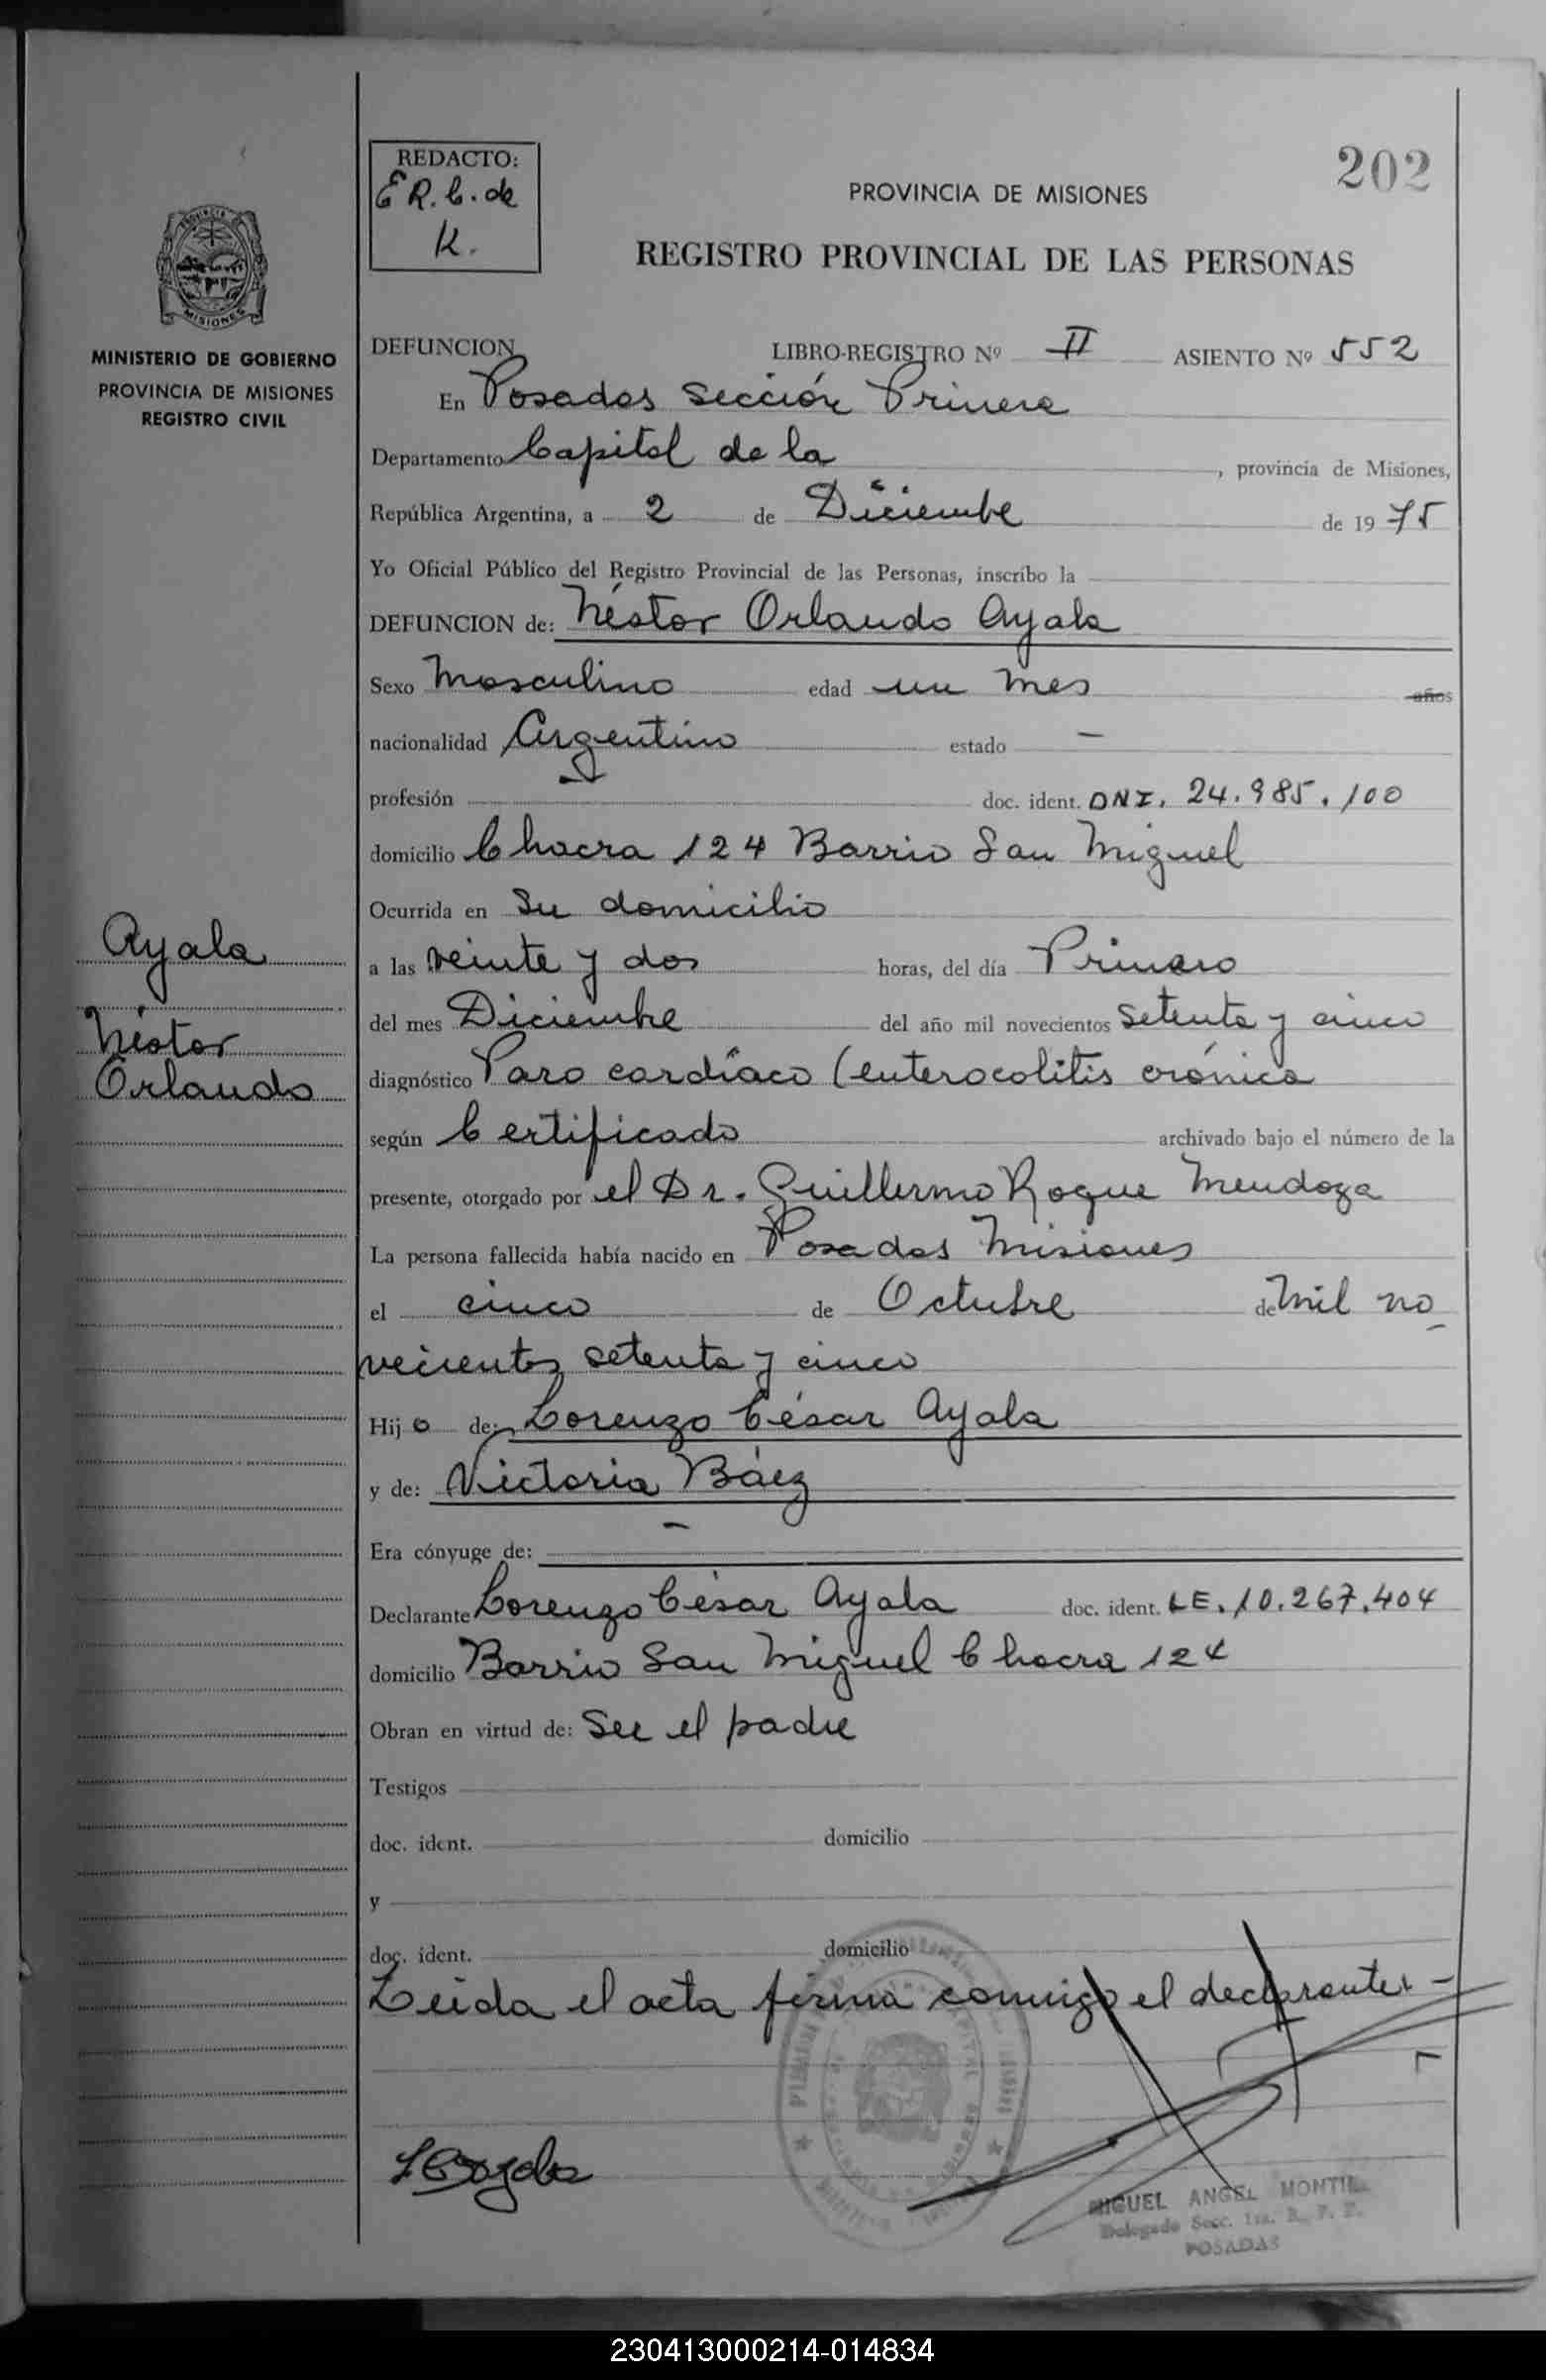 202
REDACTO:
E R. C. de
K.
PROVINCIA DE MISIONES
REGISTRO PROVINCIAL DE LAS PERSONAS
PROVINCIA DE
MISIONES
MINISTERIO DE GOBIERNO
PROVINCIA DE MISIONES
REGISTRO CIVIL
DEFUNCION LIBRO-REGISTRO Nº II ASIENTO Nº 552
En Posadas Sección Primera
Departamento Capital de la , provincia de Misiones,
República Argentina, a 2 de Diciembre de 1975
Yo Oficial Público del Registro Provincial de las Personas, inscribo la
DEFUNCION de: Néstor Orlando Ayala
Sexo Masculino edad un mes años
nacionalidad Argentino estado –
profesión – doc. ident. DNI. 24.985.100
domicilio Chacra 124 Barrio San Miguel
Ocurrida en Su domicilio
a las veinte y dos horas, del día Primero
del mes Diciembre del año mil novecientos Setenta y cinco
diagnóstico Paro cardíaco (enterocolitis crónica
según Certificado archivado bajo el número de la
presente, otorgado por el Dr. Guillermo Roque Mendoza
La persona fallecida había nacido en Posadas Misiones
el cinco de Octubre de mil no
vecientos setenta y cinco
Hijo de: Lorenzo César Ayala
y de: Victoria Báez
Era cónyuge de: –
Declarante Lorenzo César Ayala doc. ident. LE. 10.267.404
domicilio Barrio San Miguel Chacra 124
Obran en virtud de: Ser el padre
Testigos
doc. ident. domicilio
y
doc. ident. domicilio
Leida el acta firma conmigo el declarante. –
Ayala
Néstor
Orlando
MIGUEL ANGEL
Delegado Secc. 1ra. R. P. P.
POSADAS
230413000214-014834